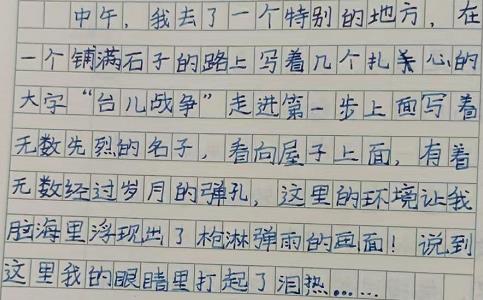 中午，我去了一个特别的地方，在
一个铺满石子的路上写着几个扎关心的
大字“台儿战争”走进第一步上面写着
无数先烈的名子，看向屋子上面，有着
无数经过岁月的弹孔，这里的环境让我
脑海里浮现出了枪淋弹雨的画面！说到
这里我的眼睛里打起了泪热……